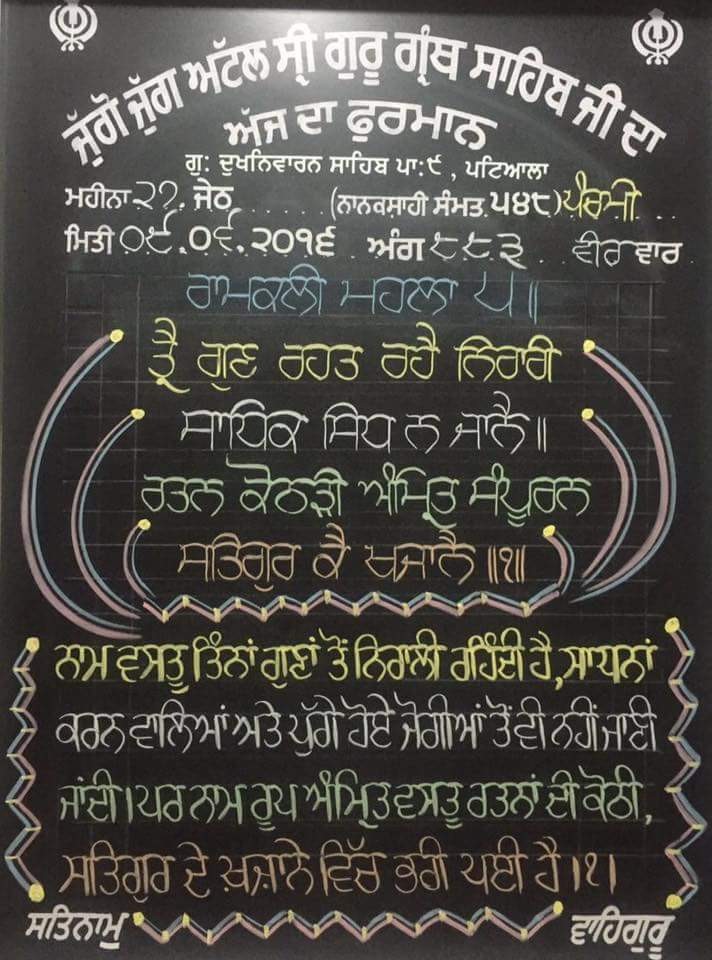 ਜੁੱਗੋ ਜੁੱਗ ਅਟੱਲ ਸ੍ਰੀ ਗੁਰੂ ਗ੍ਰੰਥ ਸਾਹਿਬ ਜੀ ਦਾ
ਅੱਜ ਦਾ ਫੁਰਮਾਨ
ਗੁ: ਦੁਖਨਿਵਾਰਨ ਸਾਹਿਬ ਪਾ:੯, ਪਟਿਆਲਾ
ਮਹੀਨਾ ੨੭. ਜੇਠ (ਨਾਨਕਸਾਹੀ ਸੰਮਤ ੫੪੮) ਪੰਚਮੀ
ਮਿਤੀ ੦੯.੦੬.੨੦੧੬ ਅੰਗ ੮੮੩ ਵੀਰ ਵਾਰ
ਰਾਮਕਲੀ ਮਹਲਾ ੫॥
ਤ੍ਰੈ ਗੁਣ ਰਹਤ ਰਹੈ ਨਿਰਾਰੀ
ਸਾਧਿਕ ਸਿਧ ਨ ਜਾਨੈ॥
ਰਤਨ ਕੋਠੜੀ ਅੰਮ੍ਰਿਤ ਸੰਪੂਰਨ
ਸਤਿਗੁਰ ਕੈ ਖਜਾਨੈ॥੧॥
ਨਾਮ ਵਸਤੂ ਤਿੰਨਾਂ ਗੁਣਾਂ ਤੋਂ ਨਿਰਾਲੀ ਰਹਿੰਦੀ ਹੈ, ਸਾਧਨਾਂ
ਕਰਨ ਵਾਲਿਆਂ ਅਤੇ ਪੁੱਗੇ ਹੋਏ ਜੋਗੀਆਂ ਤੋਂ ਵੀ ਨਹੀਂ ਜਾਣੀ
ਜਾਂਦੀ। ਪਰ ਨਾਮ ਰੂਪ ਅੰਮ੍ਰਿਤ ਵਸਤੂ ਰਤਨਾਂ ਦੀ ਕੋਠੀ,
ਸਤਿਗੁਰ ਦੇ ਖ਼ਜ਼ਾਨੇ ਵਿੱਚ ਭਰੀ ਪਈ ਹੈ।੧।
ਸਤਿਨਾਮੁ ਵਾਹਿਗੁਰੂ